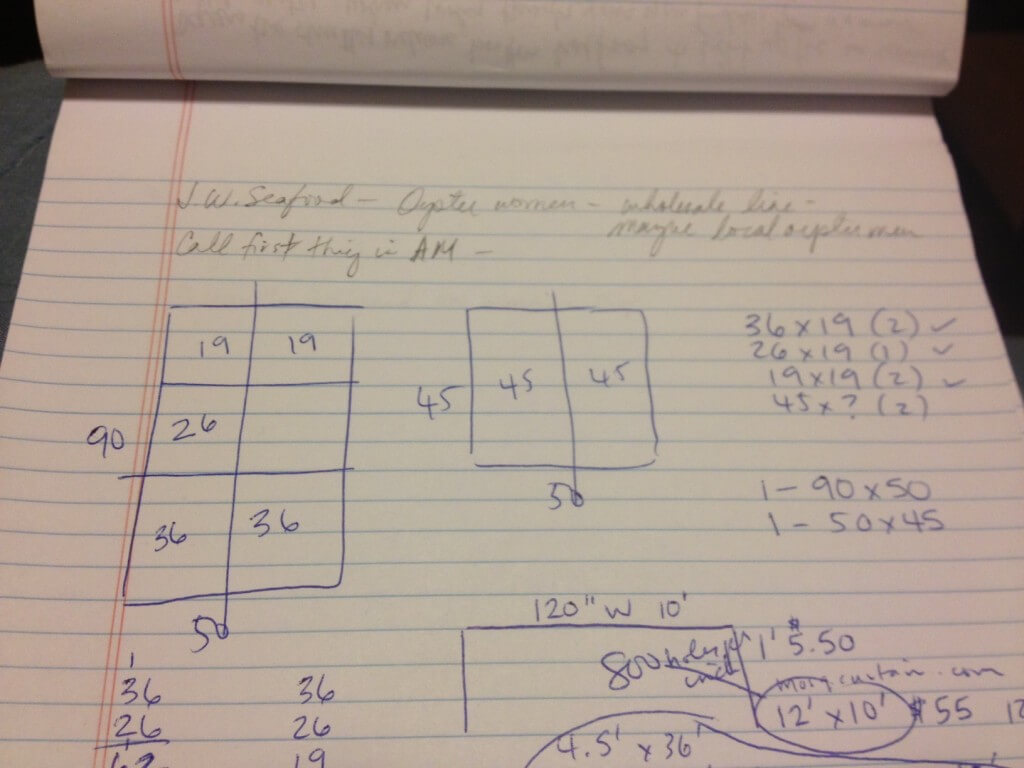 J.W. Seafood - Oyster women - wholesale line -
maybe local oystermen
Call first thing in AM -
19 19
26
90
36 36
50
45 45 45
50
36 x 19 (2) ✓
26 x 19 (1) ✓
19 x 19 (2) ✓
45 x ? (2)
1 - 90 x 50
1 - 50 x 45
120" W 10'
800
1' $5.50
12' x 10' $55 12
4.5' x 36'
1
36
26
1
62
36
26
19